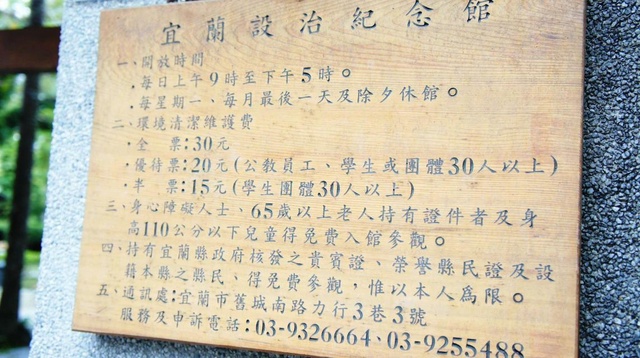 宜蘭設治紀念館
一、開放時間
．每日上午9時至下午5時。
．每星期一、每月最後一天及除夕休館。
二、環境清潔維護費
．全　票：30元
．優待票：20元（公教員工、學生或團體30人以上）
．半　票：15元（學生團體30人以上）
三、身心障礙人士、65歲以上老人持有證件者及身
高110公分以下兒童得免費入館參觀。
四、持有宜蘭縣政府核發之貴賓證、榮譽縣民證及設
籍本縣之縣民、得免費參觀，惟以本人為限。
五、通訊處：宜蘭市舊城南路力行3巷3號
服務及申訴電話：03-9326664、03-9255488